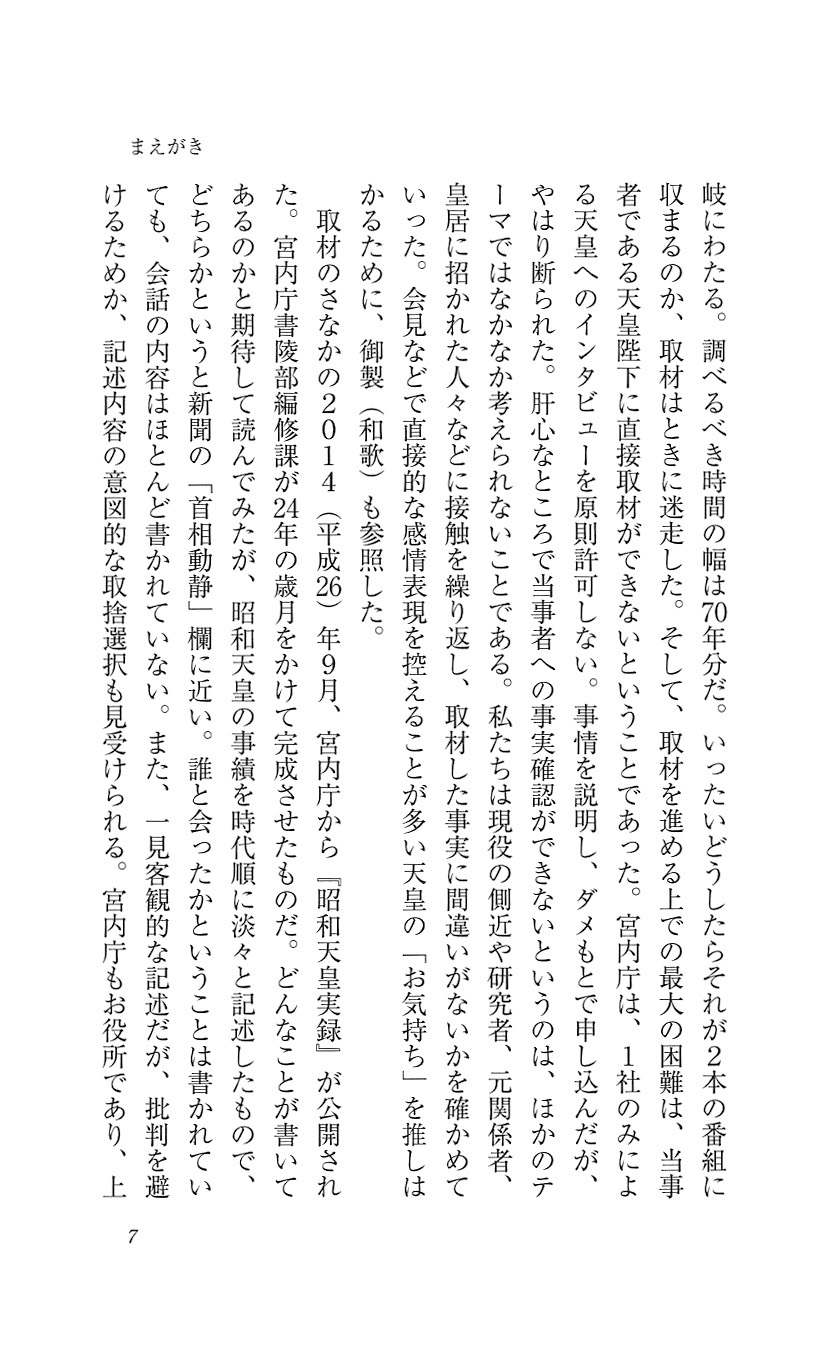 まえがき
岐にわたる。調べるべき時間の幅は70年分だ。いったいどうしたらそれが2本の番組に
収まるのか、取材はときに迷走した。そして、取材を進める上での最大の困難は、当事
者である天皇陛下に直接取材ができないということであった。宮内庁は、1社のみによ
る天皇へのインタビューを原則許可しない。事情を説明し、ダメもとで申し込んだが、
やはり断られた。肝心なところで当事者への事実確認ができないというのは、ほかのテ
ーマではなかなか考えられないことである。私たちは現役の側近や研究者、元関係者、
皇居に招かれた人々などに接触を繰り返し、取材した事実に間違いがないかを確かめて
いった。会見などで直接的な感情表現を控えることが多い天皇の「お気持ち」を推しは
かるために、御製（和歌）も参照した。
　取材のさなかの2014（平成26）年9月、宮内庁から『昭和天皇実録』が公開され
た。宮内庁書陵部編修課が24年の歳月をかけて完成させたものだ。どんなことが書いて
あるのかと期待して読んでみたが、昭和天皇の事績を時代順に淡々と記述したもので、
どちらかというと新聞の「首相動静」欄に近い。誰と会ったかということは書かれてい
ても、会話の内容はほとんど書かれていない。また、一見客観的な記述だが、批判を避
けるためか、記述内容の意図的な取捨選択も見受けられる。宮内庁もお役所であり、上
7